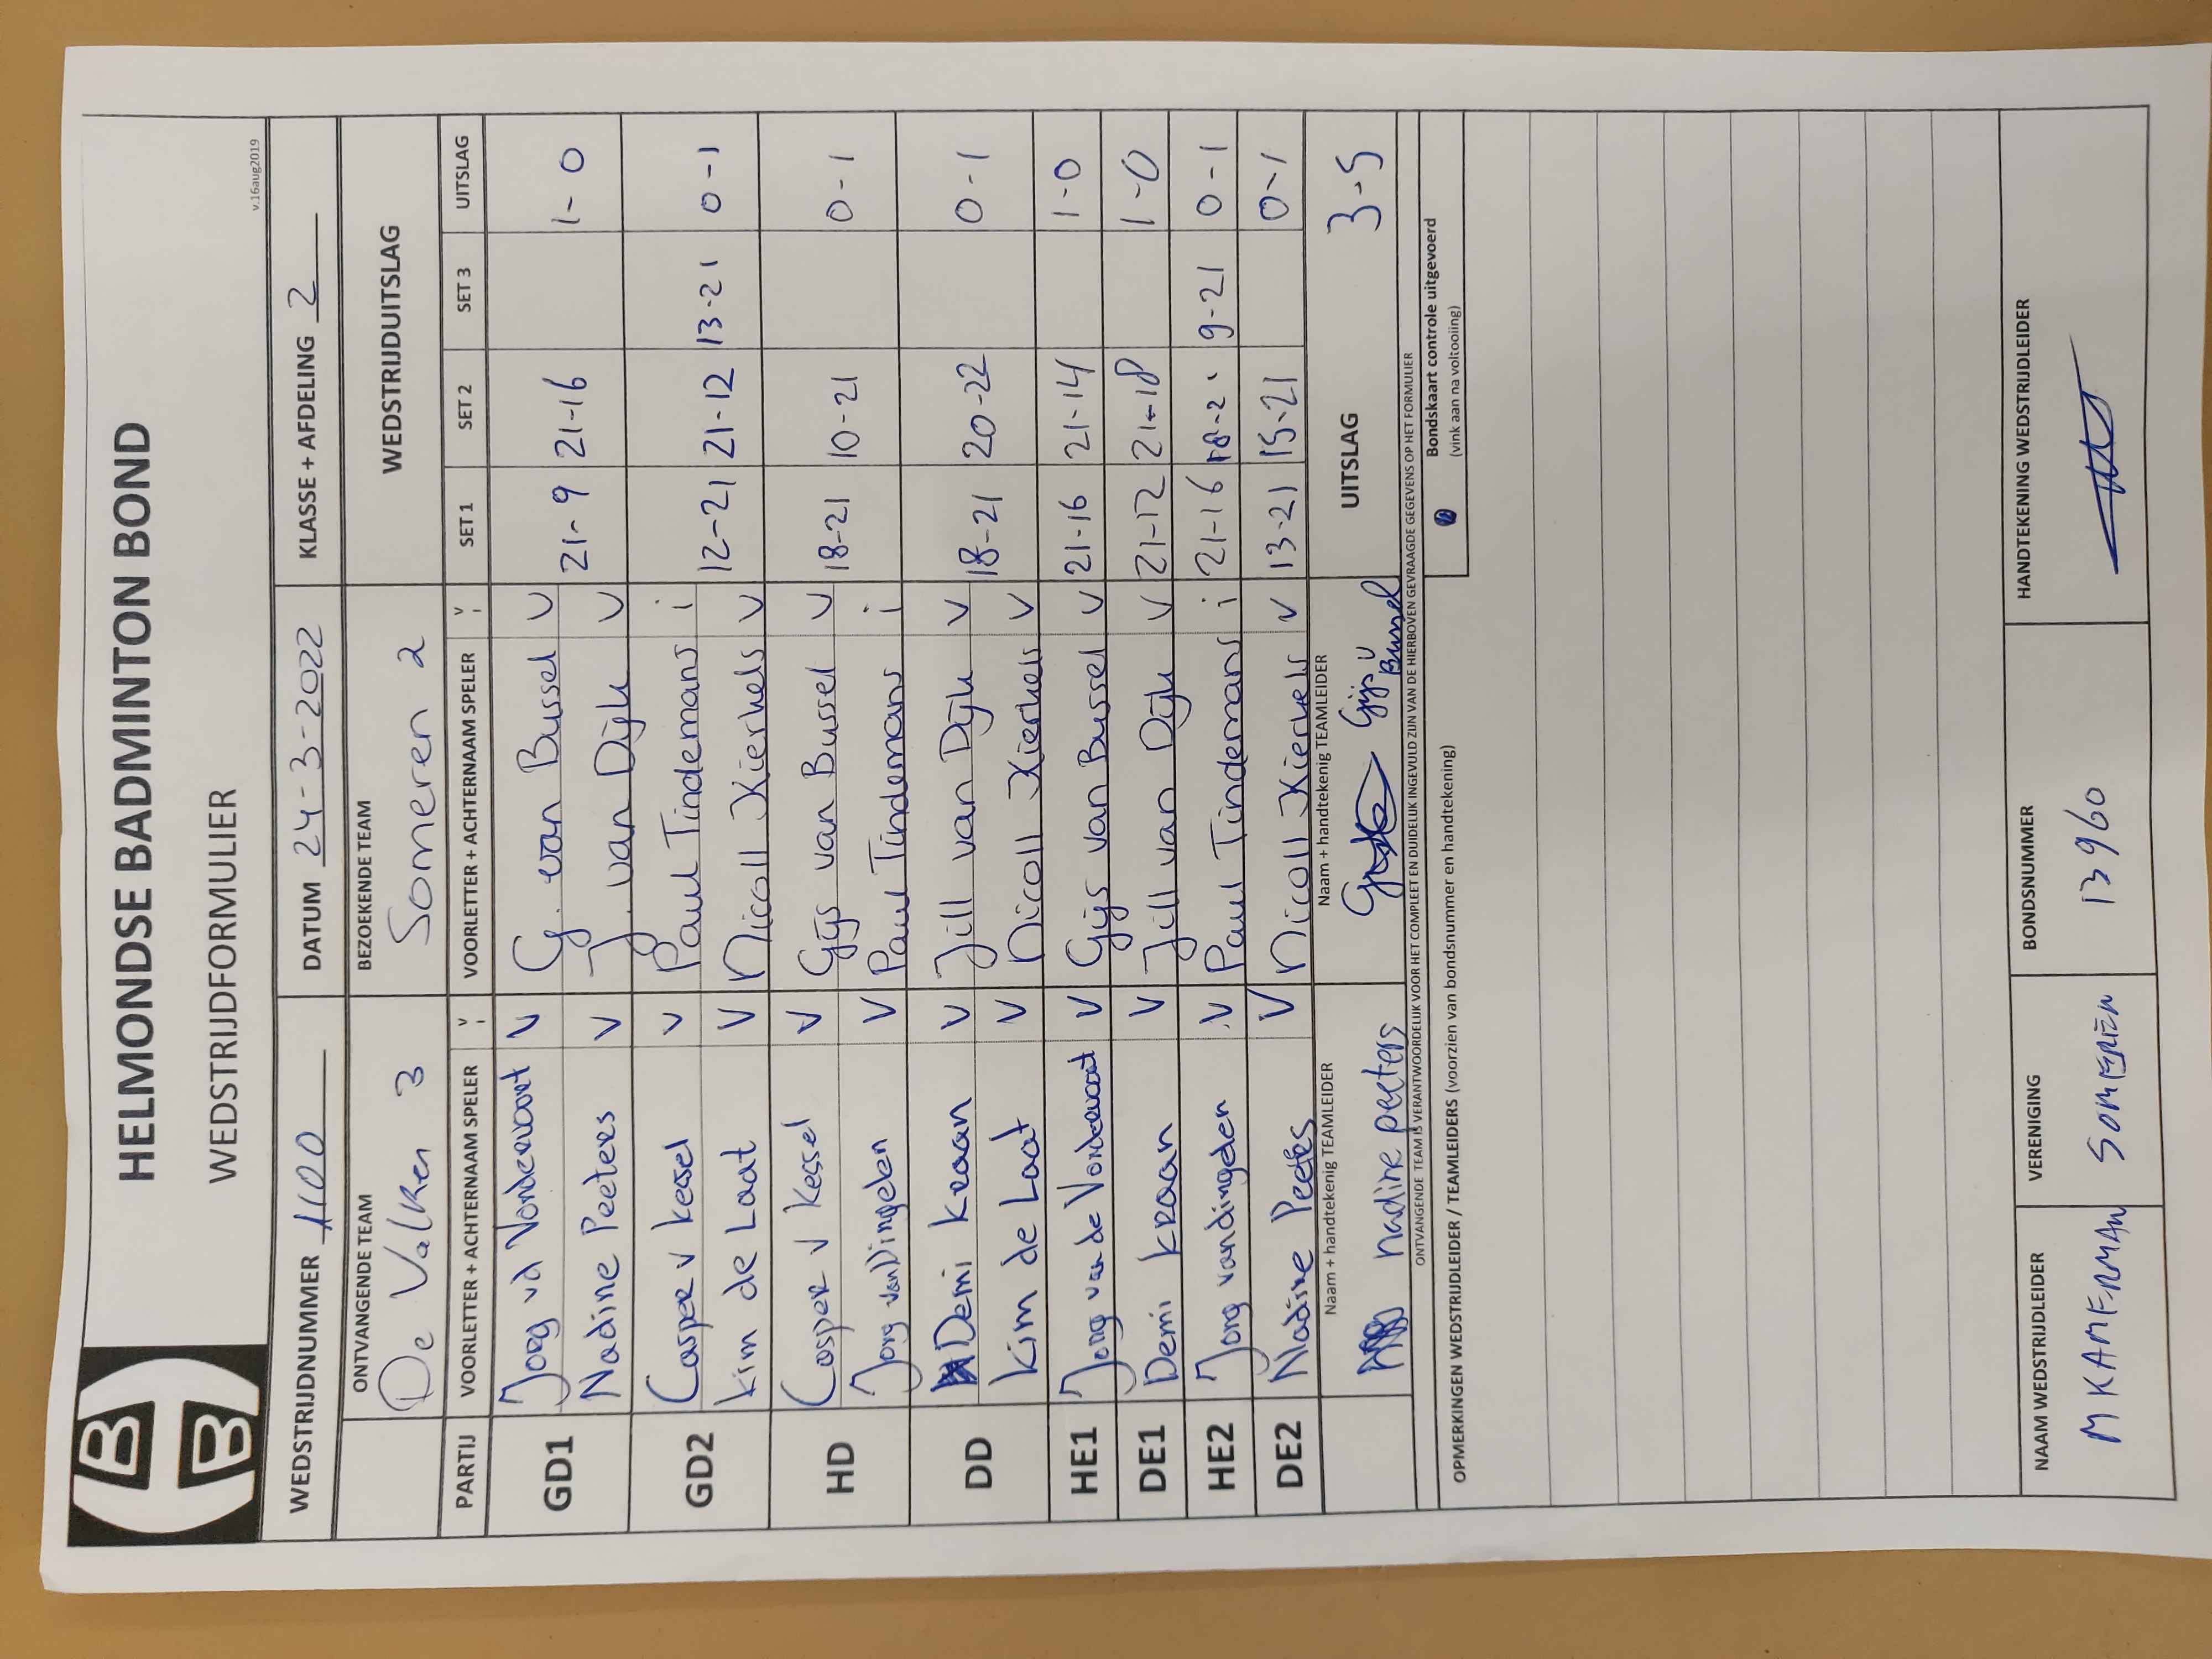 HELMONDSE BADMINTON BOND
WEDSTRIJDFORMULIER
v.16aug2019
WEDSTRIJDNUMMER 1100 DATUM 24-3-2022 KLASSE + AFDELING 2
ONTVANGENDE TEAM BEZOEKENDE TEAM WEDSTRIJDUITSLAG
De Valken 3 Someren 2
PARTIJ VOORLETTER + ACHTERNAAM SPELER V i VOORLETTER + ACHTERNAAM SPELER V i SET 1 SET 2 SET 3 UITSLAG
GD1 Jorg vd Vondervoort V G. van Bussel V 21-9 21-16 1-0
Nadine Peeters V J. van Dijk V
GD2 Casper v kessel V Paul Tindemans i 12-21 21-12 13-21 0-1
kim de Laat V Nicoll Kierkels V
HD Casper v kessel V Gijs van Bussel V 18-21 10-21 0-1
Jorg van Dingelen V Paul Tindemans i
DD Demi kraan V Jill van Dijk V 18-21 20-22 0-1
kim de Laat V Nicoll Kierkels V
HE1 Jorg van de Vondervoort V Gijs van Bussel V 21-16 21-14 1-0
DE1 Demi kraan V Jill van Dijk V 21-12 21-18 1-0
HE2 Jorg vandingelen V Paul Tindemans i 21-16 18-21 9-21 0-1
DE2 Nadine Peeters V Nicoll Kierkels V 13-21 15-21 0-1
Naam + handtekenig TEAMLEIDER Naam + handtekenig TEAMLEIDER UITSLAG 3-5
nadine peeters Gijs v Bussel
ONTVANGENDE TEAM IS VERANTWOORDELIJK VOOR HET COMPLEET EN DUIDELIJK INGEVULD ZIJN VAN DE HIERBOVEN GEVRAAGDE GEGEVENS OP HET FORMULIER
Bondskaart controle uitgevoerd
(vink aan na voltooiing)
OPMERKINGEN WEDSTRIJDLEIDER / TEAMLEIDERS (voorzien van bondsnummer en handtekening)
NAAM WEDSTRIJDLEIDER VERENIGING BONDSNUMMER HANDTEKENING WEDSTRIJDLEIDER
M KAMERMAN SOMEREN 13960